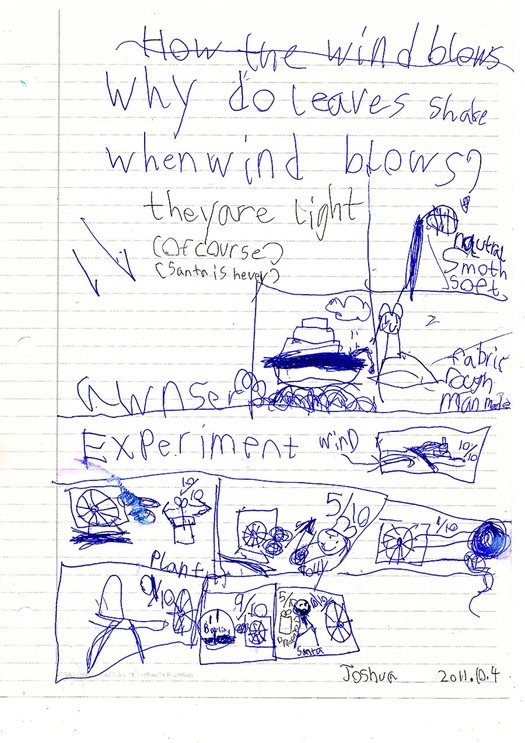 How the wind blows
Why do leaves shake
when wind blows?
they are light
(Of course)
(Santa is hevey)
nautral
smoth
soft
2
fabric
rough
man made
Awnser
Experiment wind
10/10
10/10
5/10
1/10
Plant
toy
9/10
9/10
5/10
Santa
Joshua 2011.10.4